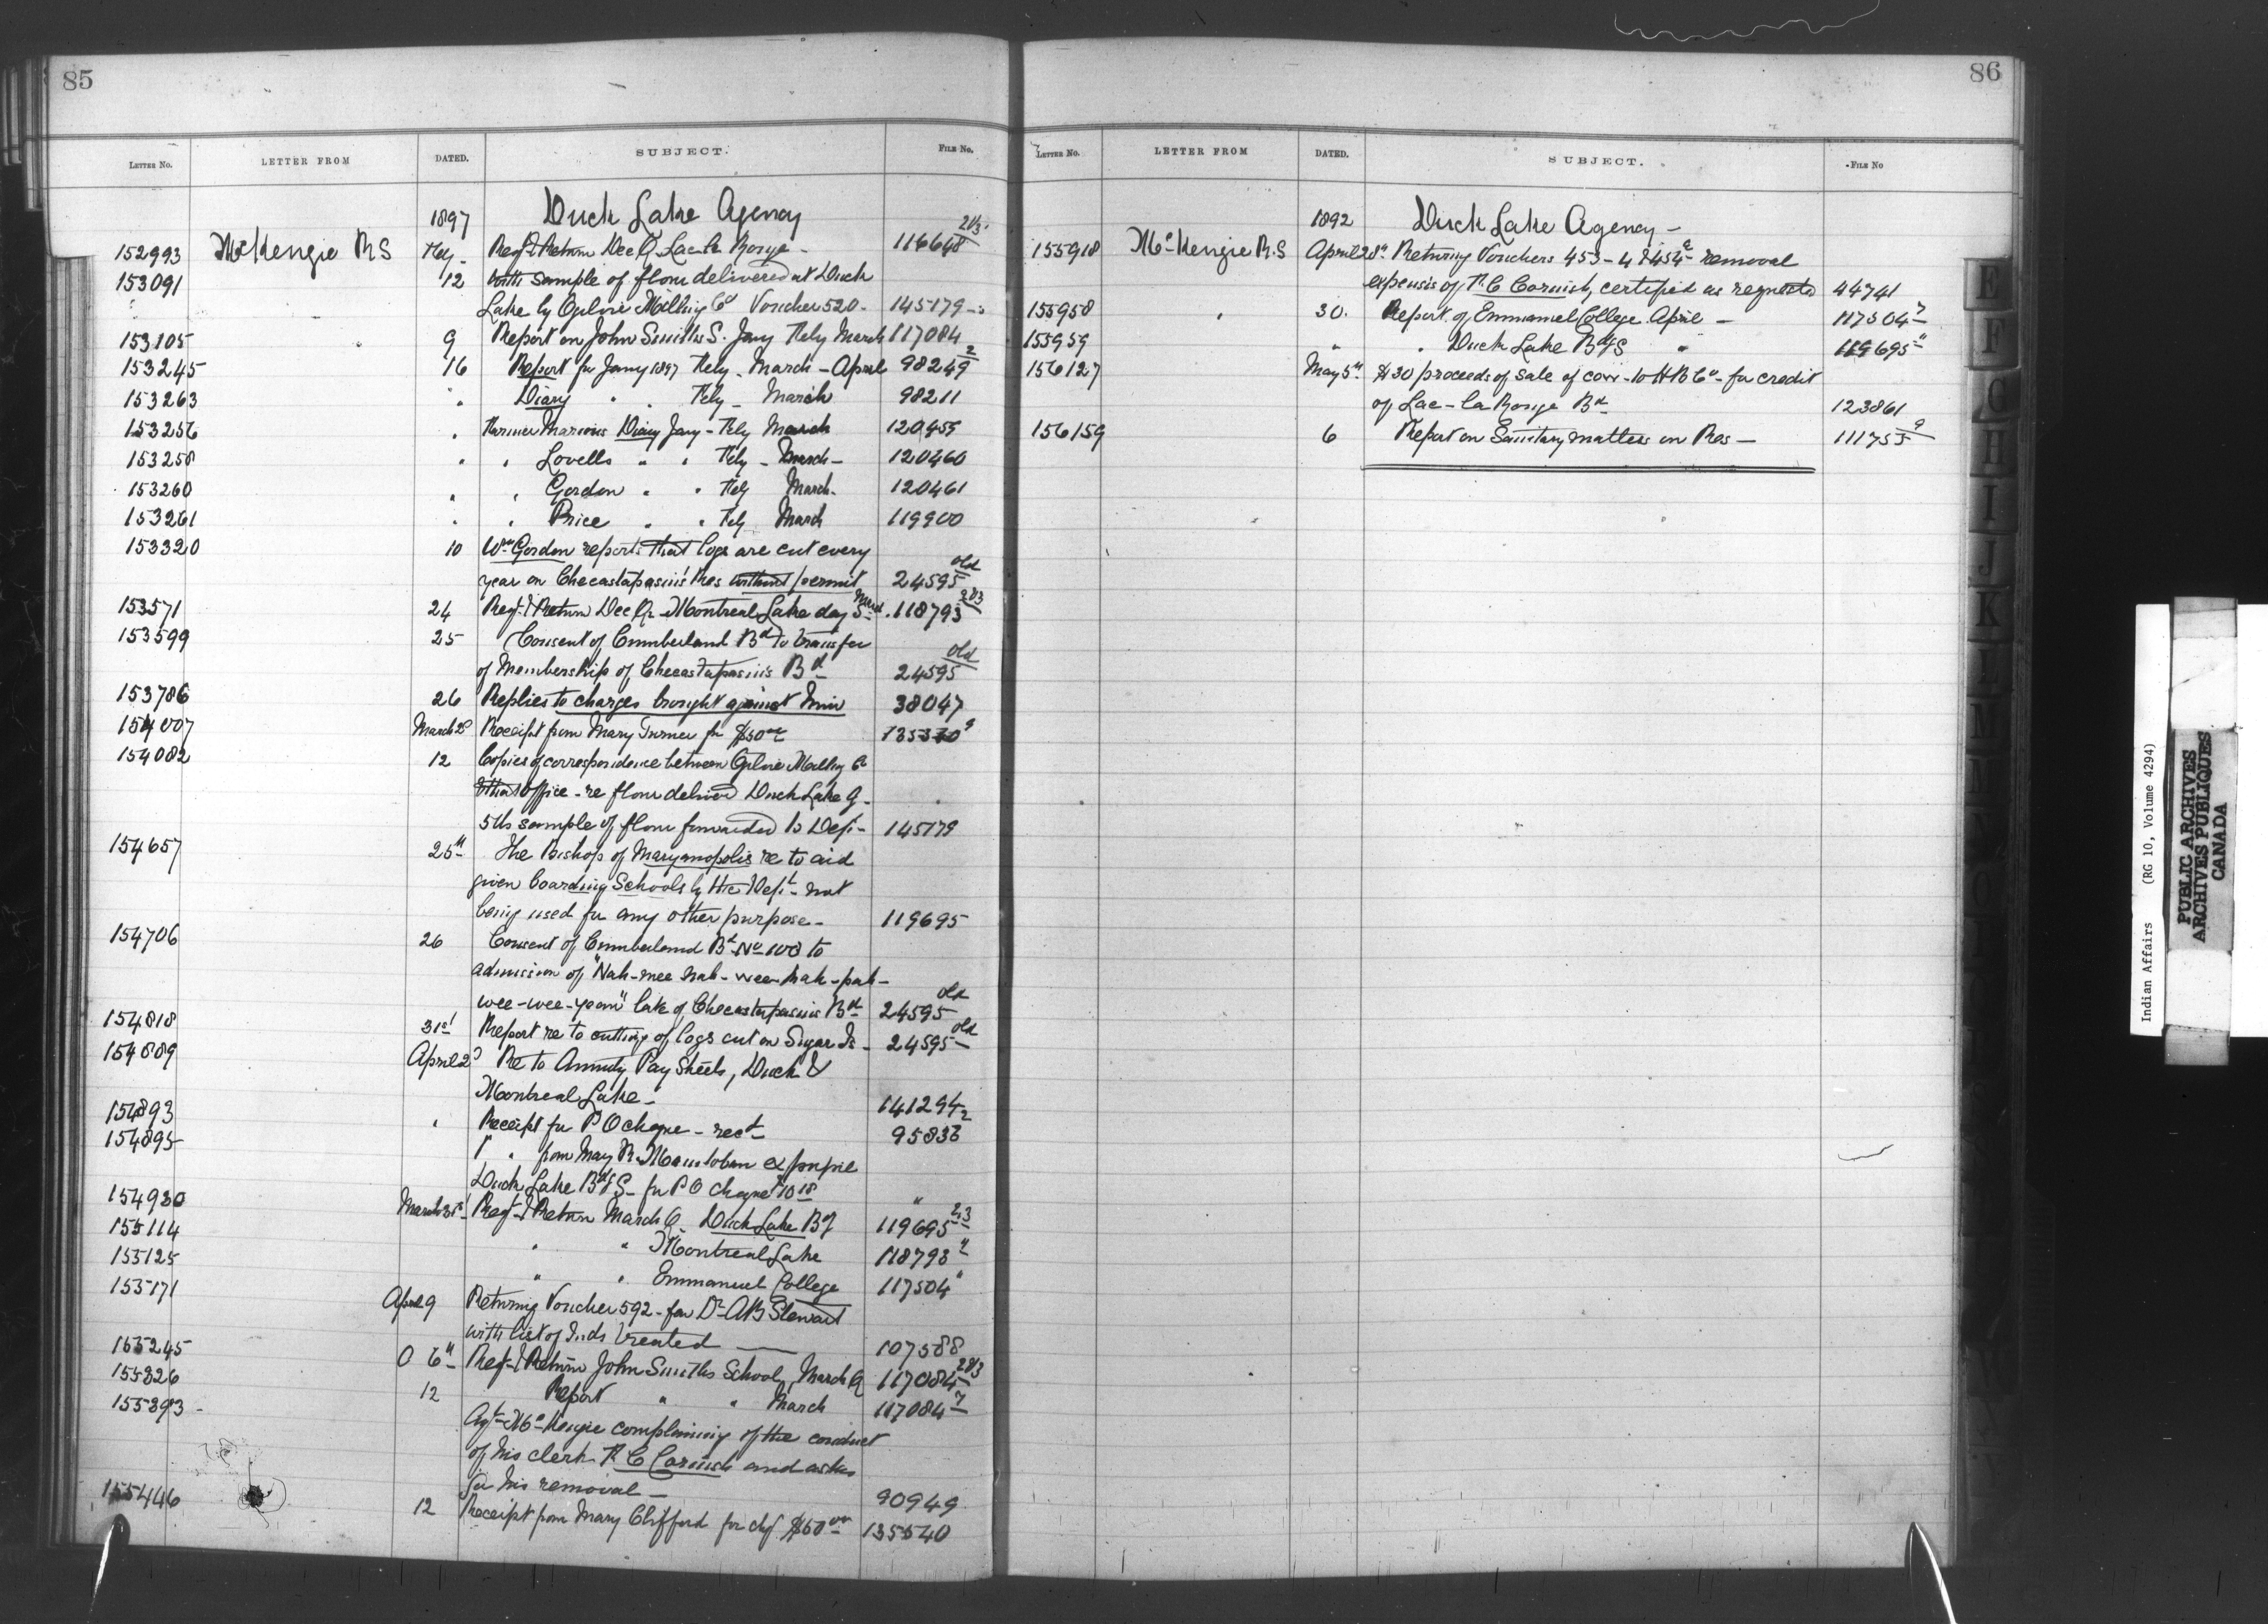 85
LETTER No. LETTER FROM DATED. SUBJECT. FILE No.
1897 Duck Lake Agency
152993 McKenzie RS Feby - Regt & Return Dec Q. Lac la Ronge - 116648 2/3.
153091 12 with sample of flour delivered at Duck
Lake by Ogilvie Milling Co Voucher 520 - 145179
153105 9 Report on John Smiths S. Jany Feby March 117084
153245 16 Report for Jany 1897 Feby - March - April 98249 2
153263 " Diary " " Feby - March 98211
153256 " Farmer Marions Diary Jany - Feby March 120459
153258 " " Lovells " " Feby - March - 120460
153260 " " Gordon " " Feby March - 120461
153261 " " Price " " Feby March 119900
153320 10 Wm Gordon reports that logs are cut every
year on Checastapasin's Res without permit 24595 old
153571 24 Regt & Return Dec Qr - Montreal Lake day S. 118793 2/3
153599 25 Consent of Cumberland Bd to transfer
of Membership of Checastapasin's Bd 24595 old
153786 26 Replies to charges brought against him 38047
154007 March 2d Receipt from Mary Turner for $50 00
154082 12 Copies of correspondence between Ogilvie Milling Co
& this office - re flour delivered Duck Lake
5 lbs sample of flour forwarded to Dept - 145179
154657 25th The Bishop of Maryanopolis re to aid
given boarding Schools by the Dept - not
being used for any other purpose - 119695
154706 26 Consent of Cumberland Bd No 100 to
admission of "Nah-nee nah-wee-hah-pah-
wee-wee-yean" late of Checastapasin's Bd 24595 old
154818 31st Report re to cutting of logs cut on Sugar Is - 24595 old
154889 April 2d Re to Annuity Pay Sheets, Duck &
Montreal Lake - 141294 2
154893 " Receipt for P O cheque - rect 95836
154895 " " from May R. Manitoban ex pupil
Duck Lake Bdg S - for P O cheque 10 18 "
154930 March 31st Regt & Return March Q. Duck Lake Bdg 119695 2/3
155114 " " Montreal Lake 118793 "
155125 " " Emmanuel College 117504 "
155171 April 9 Returning Voucher 592 - for Dr A B Stewart
with list of Inds treated 107588
155245 6th Regt & Return John Smiths School, March Q 117084 2/3
155326 12 Report " " March 117084 7
155393 - Agt McKenzie complaining of the conduct
of his clerk R C Cornish and asks
for his removal - 90949
155446 12 Receipt from Mary Clifford for chq. $50 00 135540
86
LETTER No. LETTER FROM DATED. SUBJECT. FILE No
1892 Duck Lake Agency -
155918 McKenzie R.S April 28th Returning Vouchers 453 - 4 & 454 removal
expenses of R. C Cornish, certified as requested 44741
155958 " 30. Report of Emmanuel College April - 117504 7
155959 " " Duck Lake Bdg S " 119695 "
156127 May 5th $30 proceeds of sale of cow - to H B Co - for credit
of Lac - la Ronge Bd 123861
156159 6 Report on Sanitary matters on Res - 111755 9
E
F
G
H
I
J
K
L
M
Indian Affairs (RG 10, Volume 4294)
PUBLIC ARCHIVES
ARCHIVES PUBLIQUES
CANADA